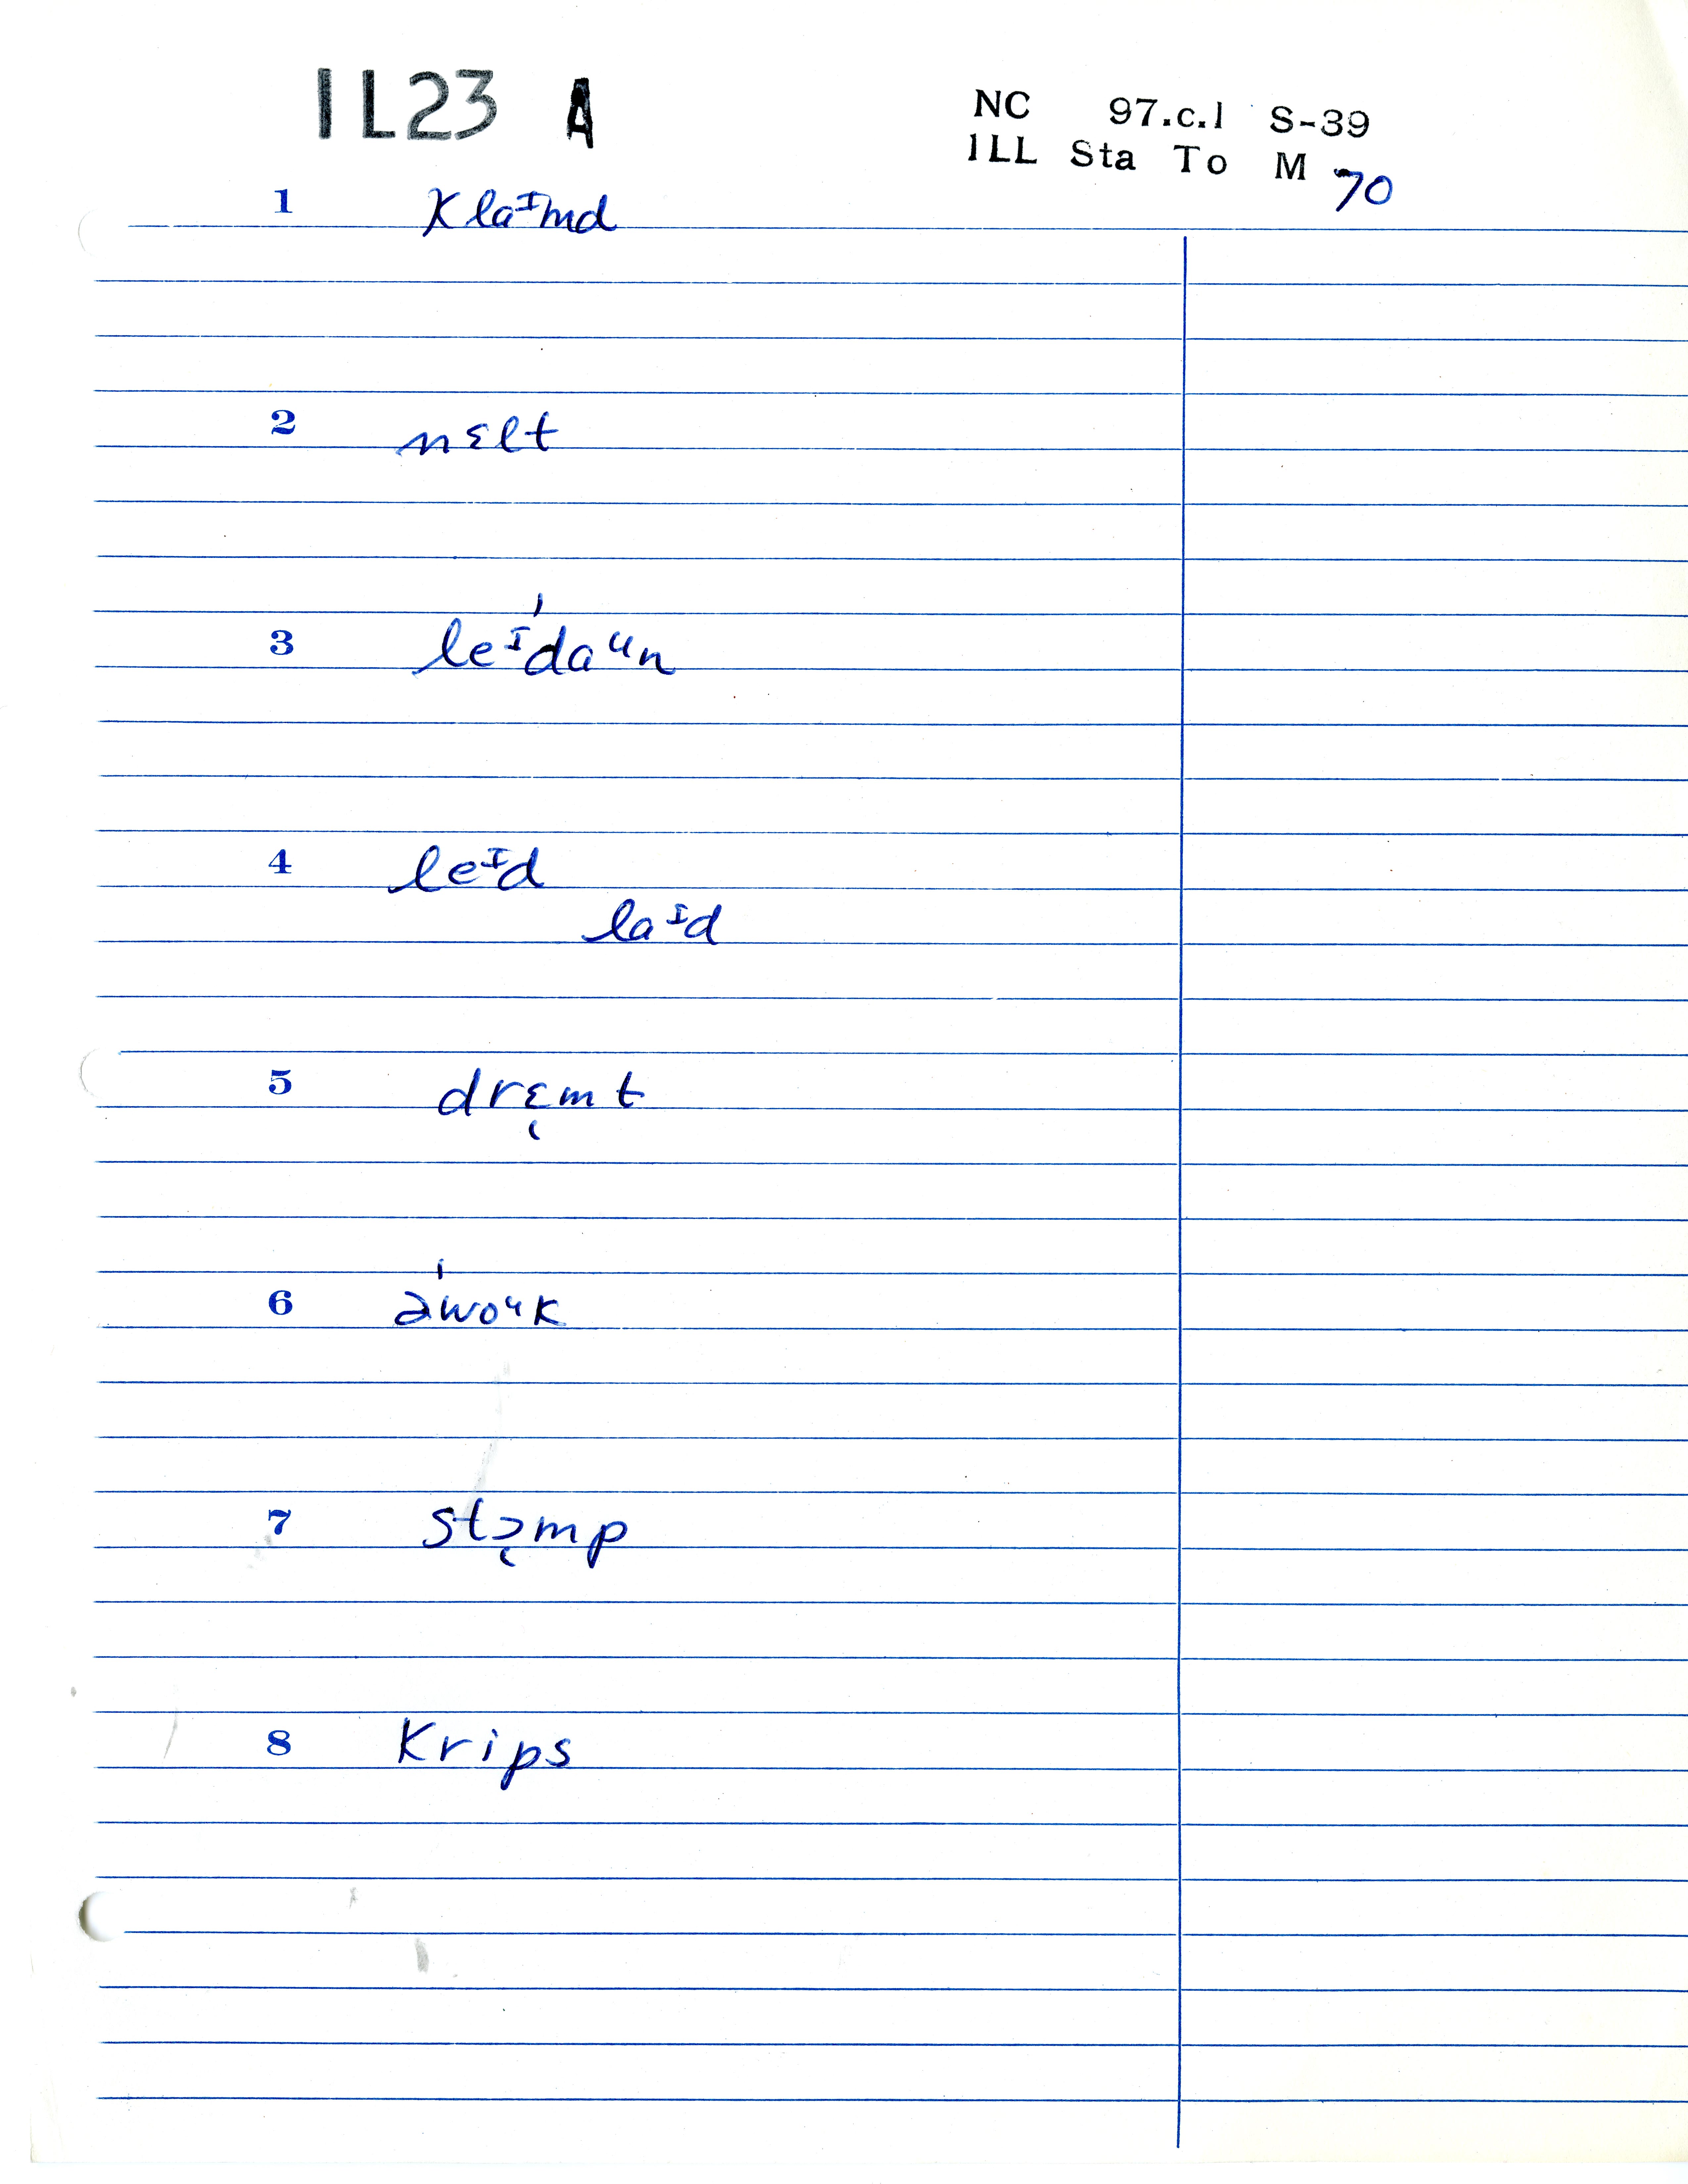 IL23 A
NC 97.c.1 S-39
ILL Sta To M 70
1 klaᴵmd
2 nɛlt
3 leᴵˈdaᵘn
4 leᴵd
laᴵd
5 drɛ̜mt
6 əˈwoᵘk
7 stɔ̜mp
8 krips